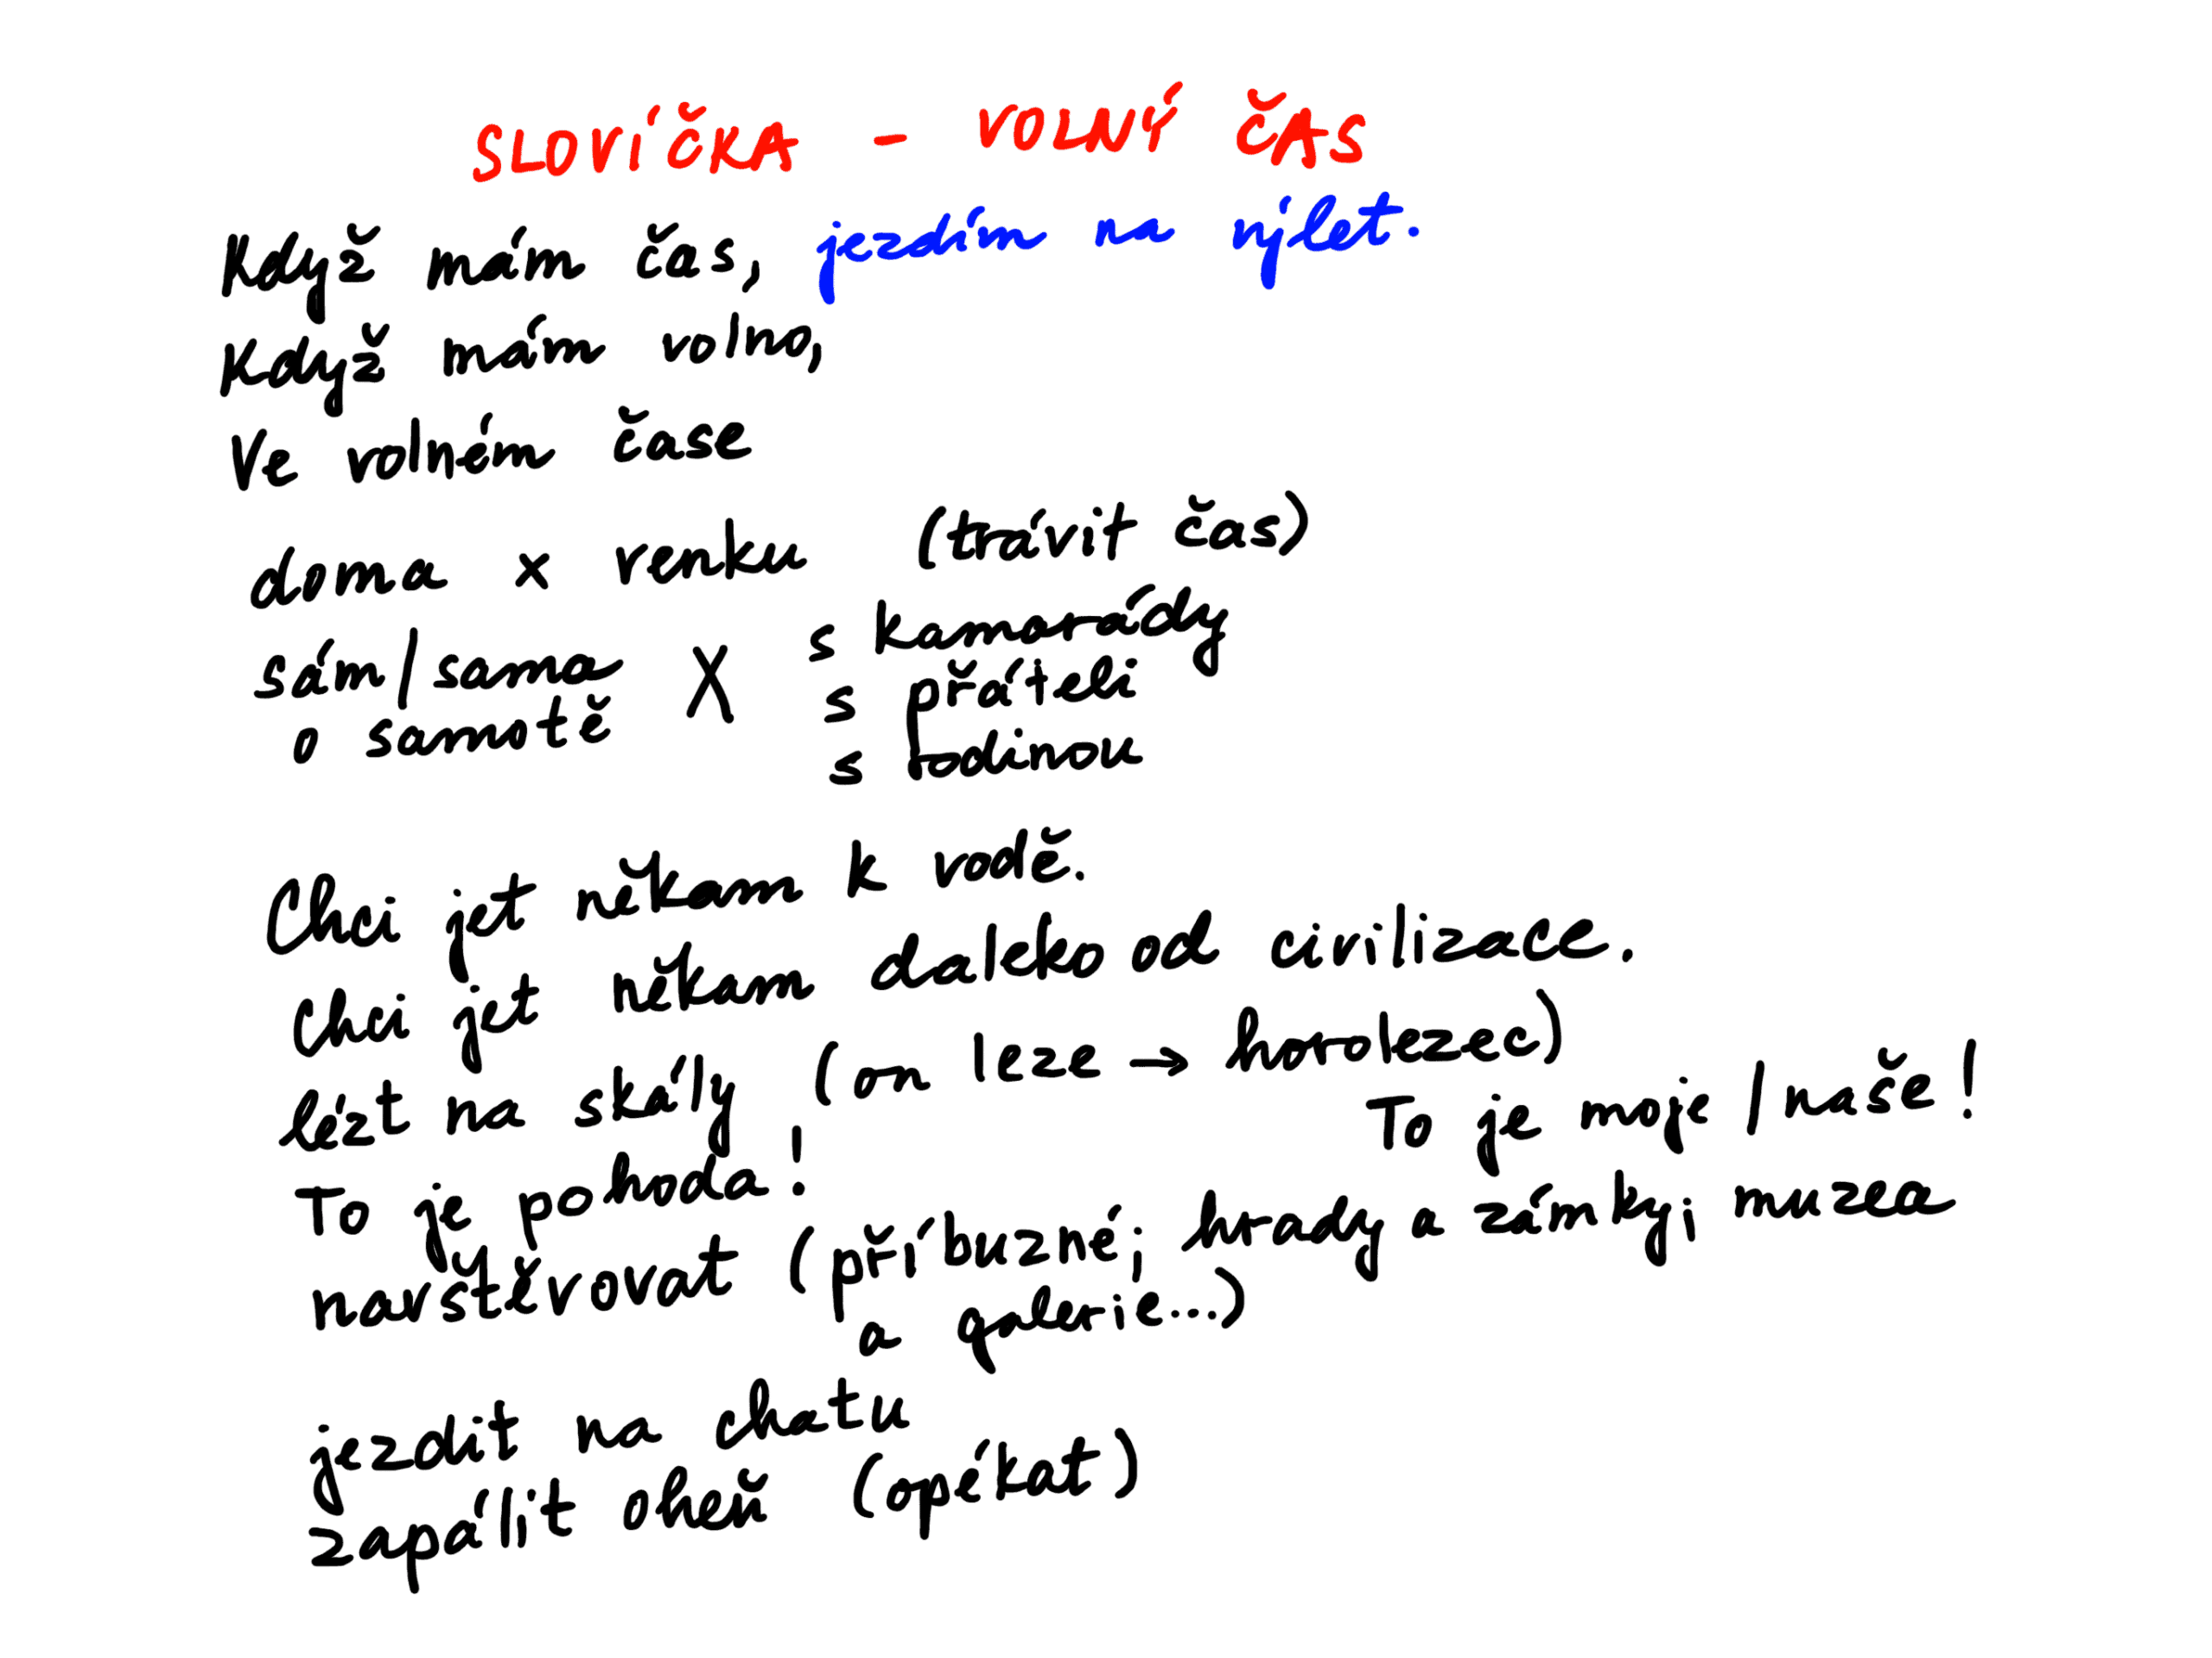 SLOVÍČKA - VOLNÝ ČAS
Když mám čas, jezdím na výlet.
Když mám volno,
Ve volném čase
doma x venku (trávit čas)
sám/sama X s kamarády
o samotě s přáteli
s rodinou
Chci jet někam k vodě.
Chci jet někam daleko od civilizace.
lézt na skály (on leze → horolezec)
To je pohoda! To je moje/naše!
navštěvovat (příbuzné; hrady a zámky; muzea
a galerie...)
jezdit na chatu
zapálit oheň (opékat)